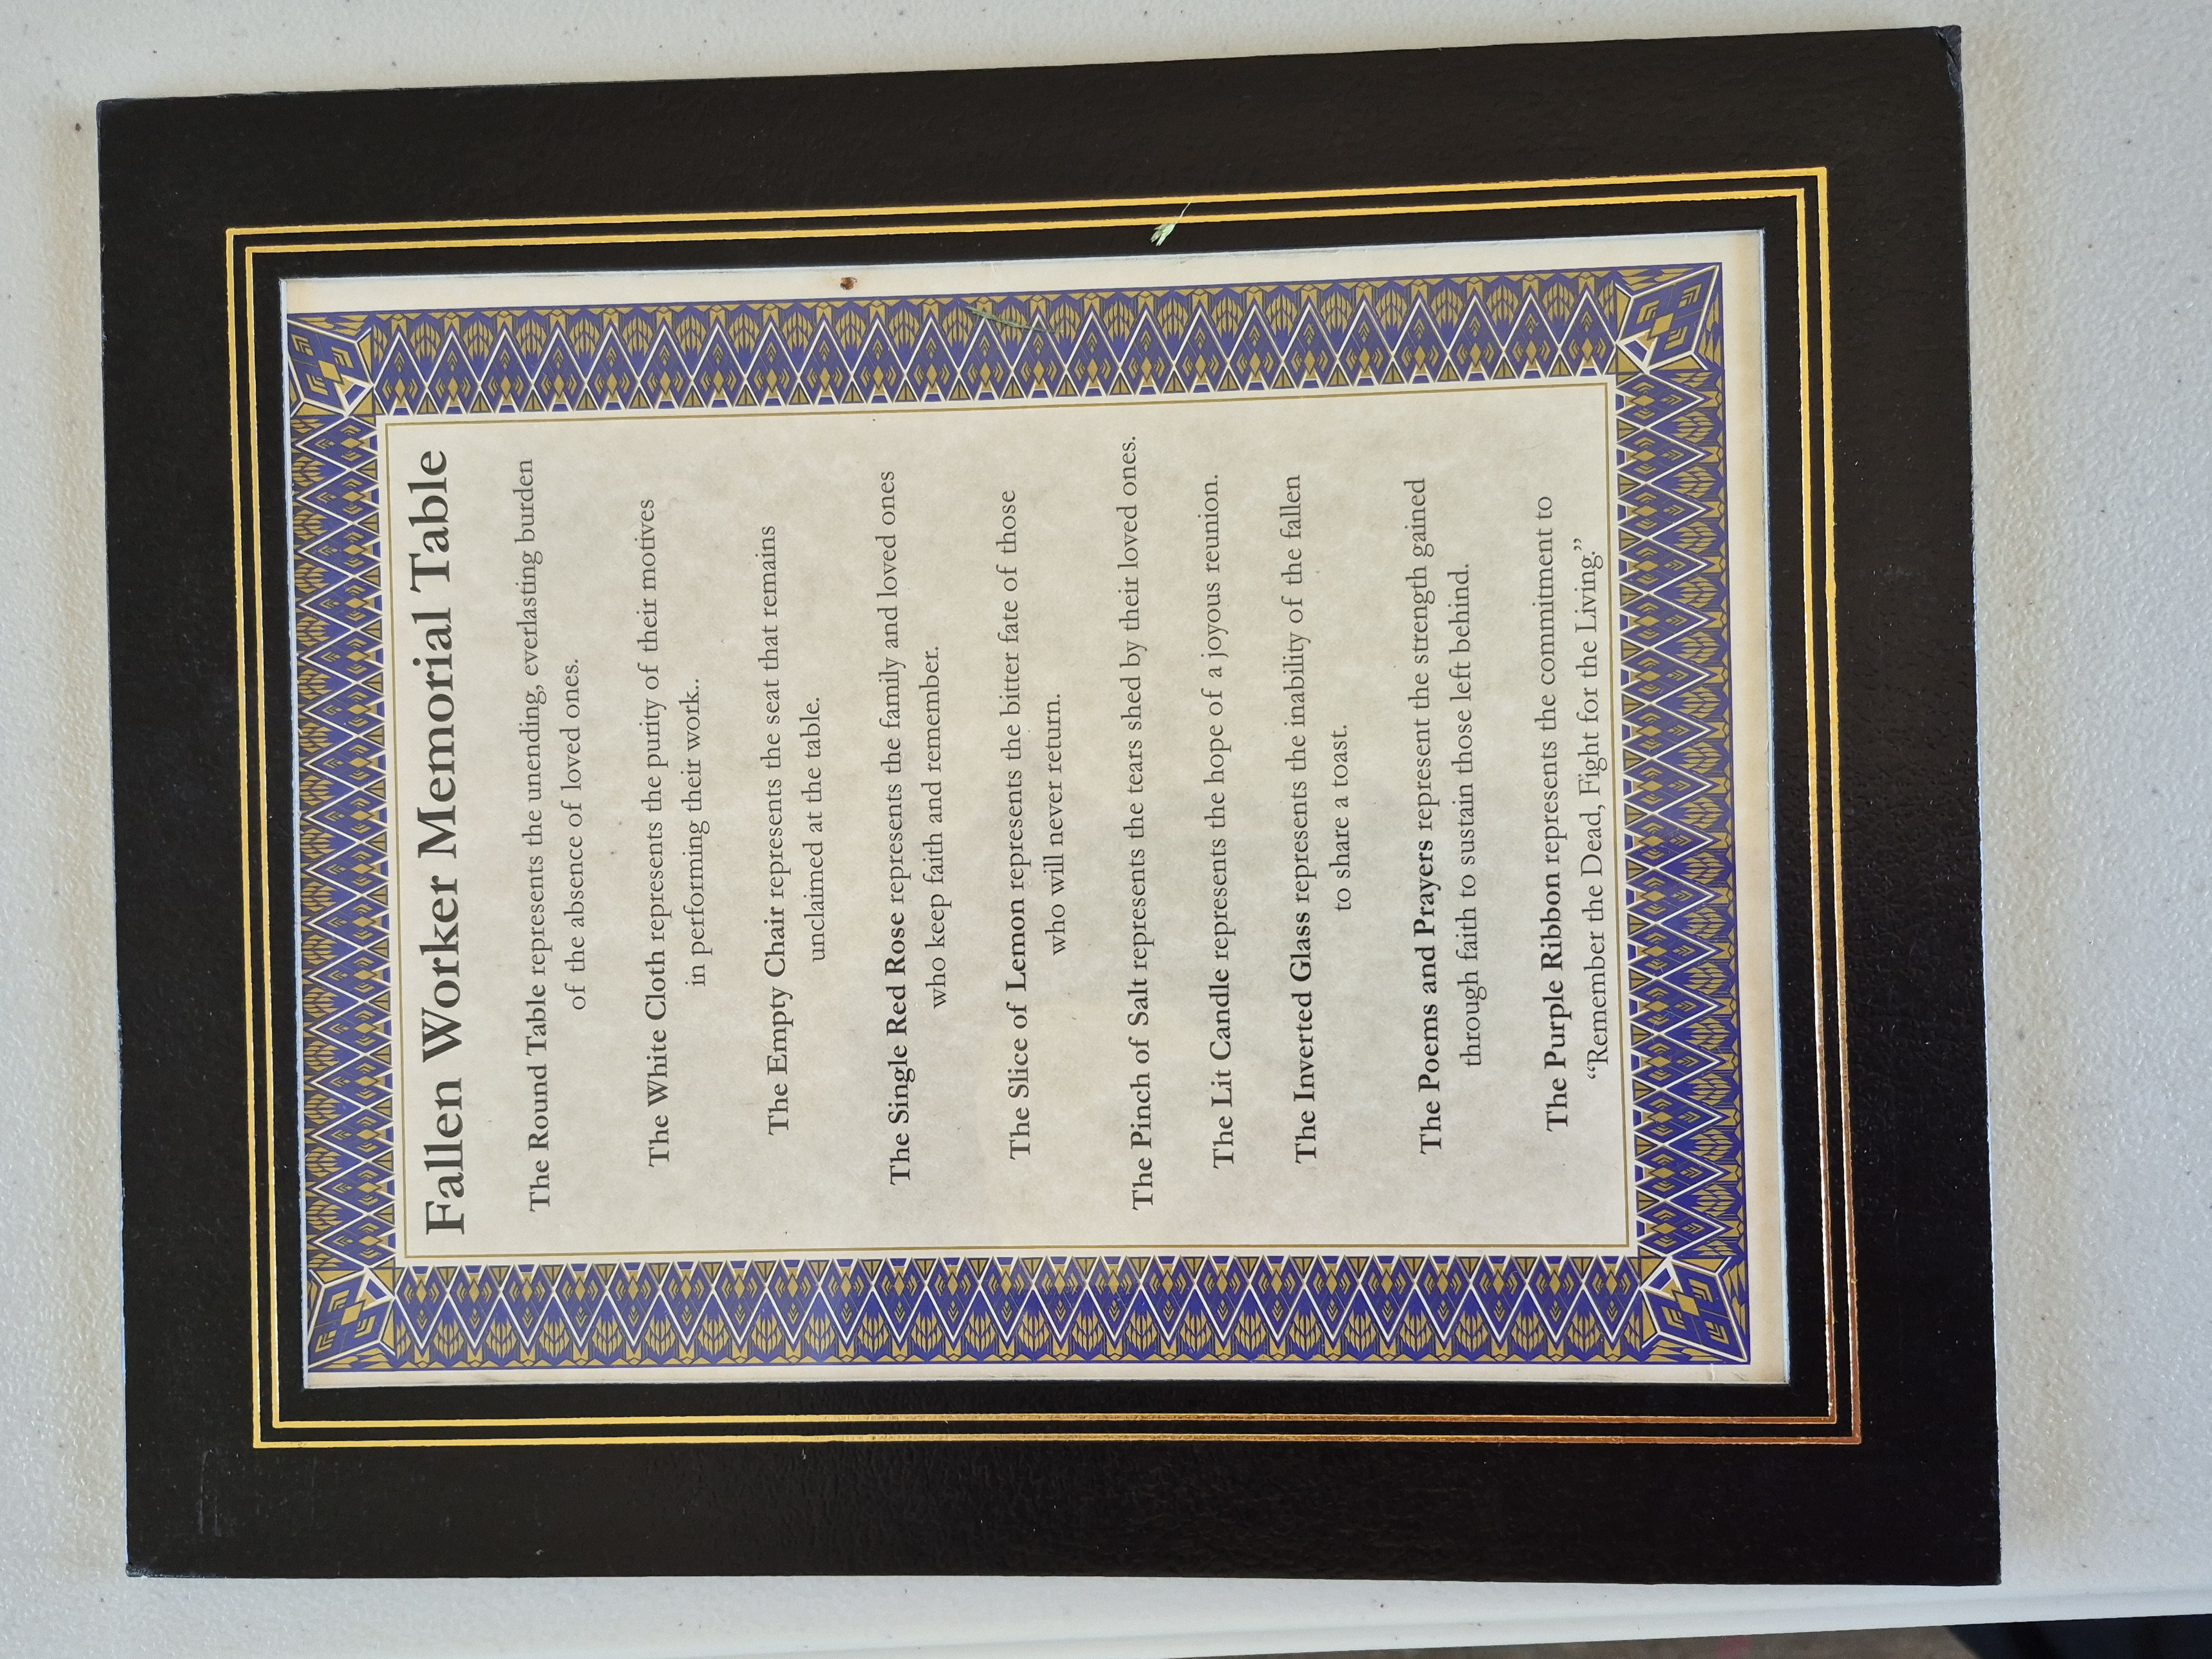 Fallen Worker Memorial Table
The Round Table represents the unending, everlasting burden
of the absence of loved ones.
The White Cloth represents the purity of their motives
in performing their work..
The Empty Chair represents the seat that remains
unclaimed at the table.
The Single Red Rose represents the family and loved ones
who keep faith and remember.
The Slice of Lemon represents the bitter fate of those
who will never return.
The Pinch of Salt represents the tears shed by their loved ones.
The Lit Candle represents the hope of a joyous reunion.
The Inverted Glass represents the inability of the fallen
to share a toast.
The Poems and Prayers represent the strength gained
through faith to sustain those left behind.
The Purple Ribbon represents the commitment to
“Remember the Dead, Fight for the Living.”